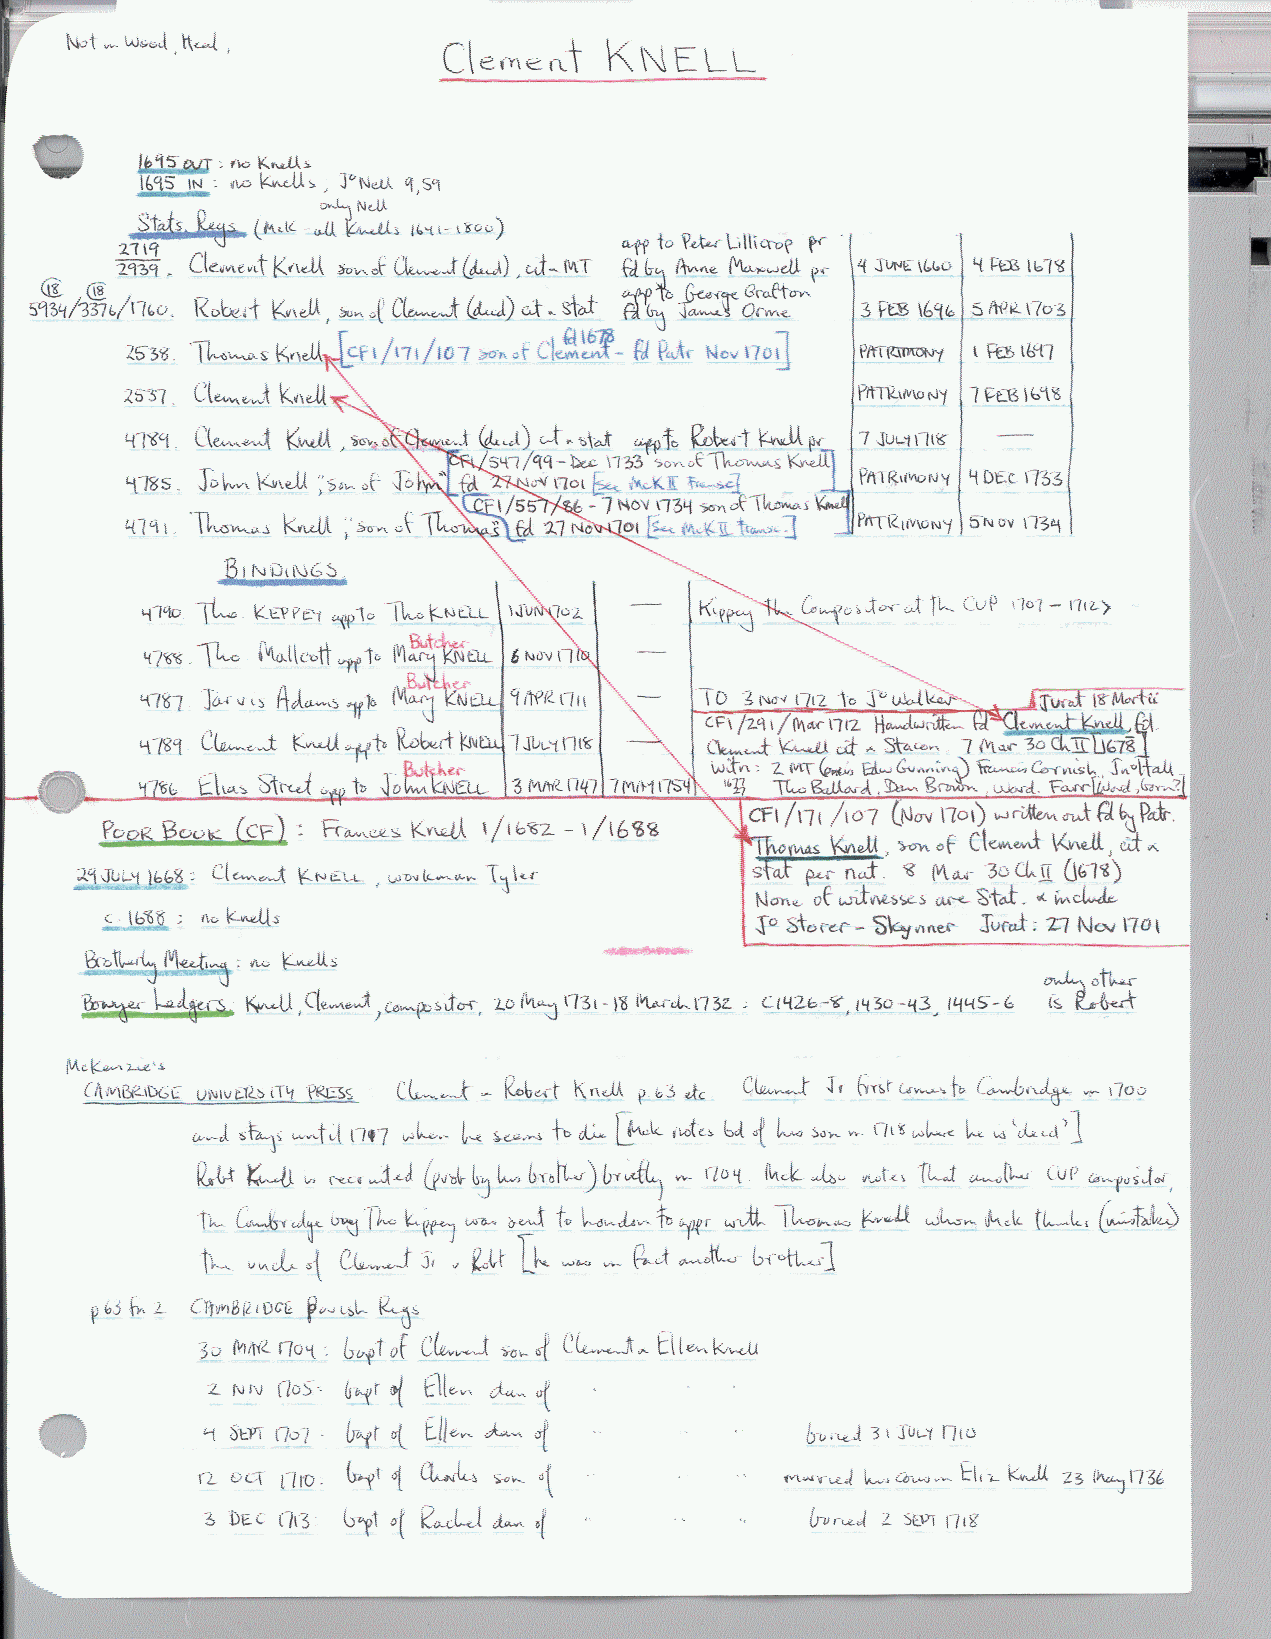 Not in Wood, Heal,
Clement KNELL
1695 OUT : no Knells
1695 IN : no Knells, Jo Nell 9,59
only Nell
Stats. Regs (McK - all Knells 1641-1800)
2719
2939. Clement Knell son of Clement (decd), cit MT app to Peter Lillicrop pr fd by Anne Maxwell pr 4 JUNE 1660 4 FEB 1678
(18) (18)
5934/3376/1760. Robert Knell, son of Clement (decd) cit & stat app to George Grafton fd by James Orme 3 FEB 1696 5 APR 1703
2538. Thomas Knell [CF1/171/107 son of Clement fd 1678 - fd Patr Nov 1701] PATRIMONY 1 FEB 1697
2537. Clement Knell PATRIMONY 7 FEB 1698
4789. Clement Knell, son of Clement (decd) cit & stat app to Robert Knell pr 7 JULY 1718 —
CF1/547/99 - Dec 1733 son of Thomas Knell
4785. John Knell, "son of John" fd 27 Nov 1701 [see McK II transc.] PATRIMONY 4 DEC 1733
CF1/557/86 - 7 NOV 1734 son of Thomas Knell
4791. Thomas Knell, "son of Thomas" fd 27 Nov 1701 [See McK II transc.] PATRIMONY 5 NOV 1734
BINDINGS
4790 Tho. KEPPEY app to Tho KNELL 1 JUN 1702 — Kippey the Compositor at the CUP 1707-1712>
Butcher
4788. Tho Mallcott app to Mary KNELL 6 NOV 1710 —
Butcher
4787 Jarvis Adams app to Mary KNELL 9 APR 1711 — TO 3 Nov 1712 to Jo Walker Jurat 18 Martii
CF1/291/Mar 1712 Handwritten fd Clement Knell, fd.
4789 Clement Knell app to Robert KNELL 7 JULY 1718 — Clement Knell cit & Stacon. 7 Mar 30 Ch II [1678]
witn: 2 MT Edw Gunning) Francis Cornish, Jn Hall
Butcher
4786 Elias Street app to John KNELL 3 MAR 1747 7 MAY 1754 1677 Tho Ballard, Dan Brown, Ward. Farr [Ward, born?]
CF1/171/107 (Nov 1701) written out fd by Patr.
POOR BOOK (CF) : Frances Knell 1/1682 - 1/1688
Thomas Knell, son of Clement Knell, cit &
stat per nat. 8 Mar 30 Ch II (1678)
29 JULY 1668 : Clement KNELL, workman Tyler
None of witnesses are Stat. & include
c. 1688 : no Knells
Jo Storer - Skynner Jurat : 27 Nov 1701
Brotherly Meeting : no Knells
only other
Bowyer Ledgers. Knell, Clement, compositor, 20 May 1731 - 18 March 1732 : C1426-8, 1430-43, 1445-6 is Robert
McKenzie's
CAMBRIDGE UNIVERSITY PRESS Clement & Robert Knell p.63 etc. Clement Jr first comes to Cambridge in 1700
and stays until 1717 when he seems to die [McK notes bd of his son in 1718 where he is 'decd']
Robt Knell is recruited (prob by his brother) briefly in 1704. McK also notes that another CUP compositor,
the Cambridge boy Tho Kippey was sent to London to appr with Thomas Knell whom McK thinks (mistake)
the uncle of Clement Jr & Robt [he was in fact another brother]
p 63 fn 2 CAMBRIDGE parish Regs
30 MAR 1704 : bapt of Clement son of Clement & Ellen Knell
2 NOV 1705 : bapt of Ellen dau of " " "
4 SEPT 1707 - bapt of Ellen dau of " " " buried 31 JULY 1710
12 OCT 1710. bapt of Charles son of " " " married his cousin Eliz Knell 23 May 1736
3 DEC 1713 bapt of Rachel dau of " " " buried 2 SEPT 1718